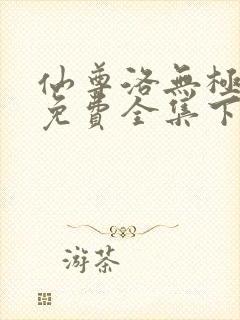 仙尊洛無極
免費全集下
游茶